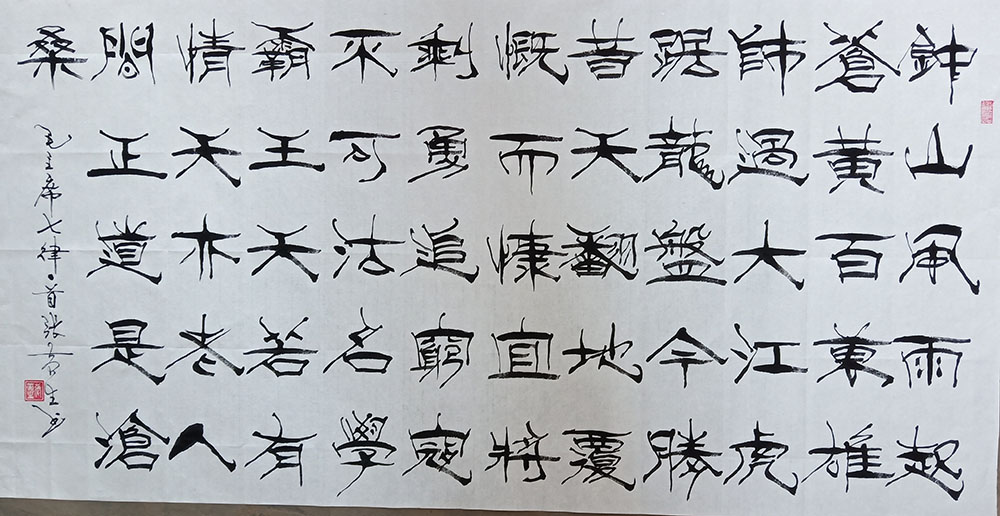 鈡山風雨起
蒼黃百萬雄
師過大江虎
踞龍盤今勝
昔天翻地覆
慨而慷宜將
剩勇追窮寇
不可沽名學
霸王天若有
情天亦老人
間正道是滄
桑
毛主席七律一首張生书